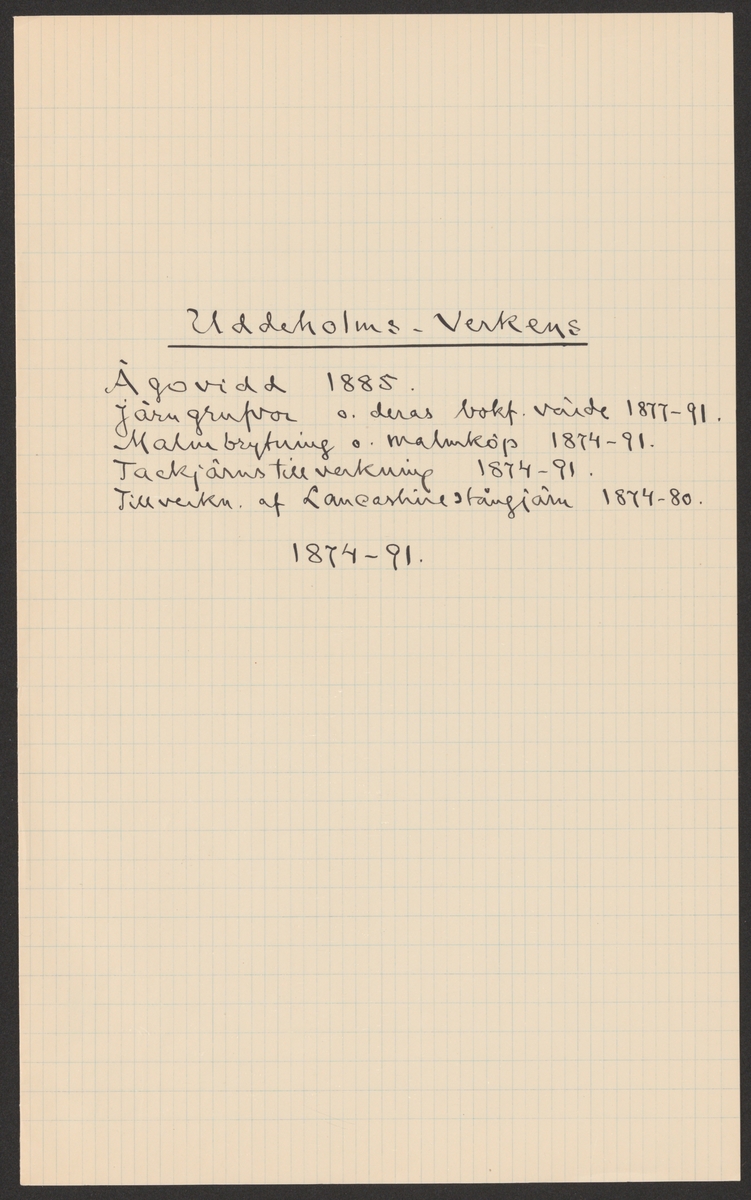 Uddeholms-Verkens
Ägovidd 1885.
Järngrufvor o. deras bokf. värde 1877-91.
Malmbrytning o. malmköp 1874-91.
Tackjärnstillverkning 1874-91.
Tillverkn. af Lancashirestångjärn 1874-80.
1874-91.